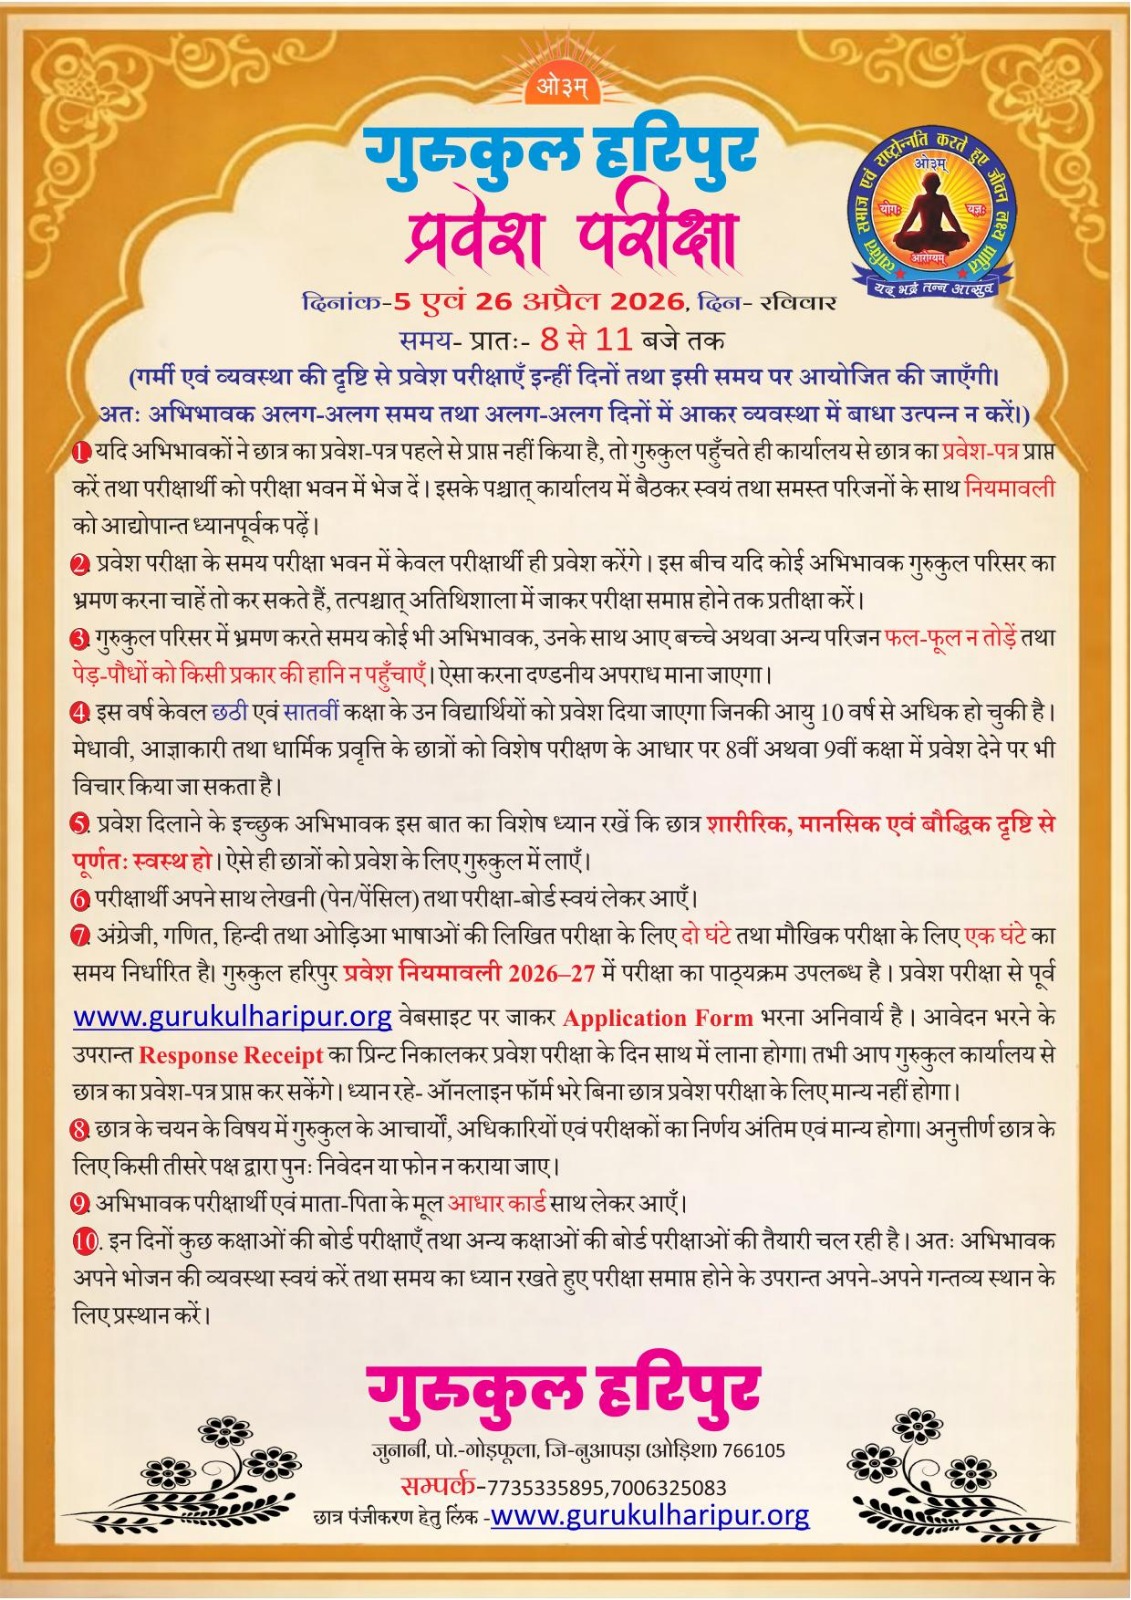 ओ३म्
गुरुकुल हरिपुर
प्रवेश परीक्षा
व्यक्ति समाज एवं राष्ट्रोन्नति करते हुए जीवन लक्ष्य प्राप्ति
ओ३म्
योगः यज्ञः
आरोग्यम्
यद् भद्रं तन्न आसुव
दिनांक-5 एवं 26 अप्रैल 2026, दिन- रविवार
समय- प्रातः- 8 से 11 बजे तक
(गर्मी एवं व्यवस्था की दृष्टि से प्रवेश परीक्षाएँ इन्हीं दिनों तथा इसी समय पर आयोजित की जाएँगी।
अतः अभिभावक अलग-अलग समय तथा अलग-अलग दिनों में आकर व्यवस्था में बाधा उत्पन्न न करें।)
1. यदि अभिभावकों ने छात्र का प्रवेश-पत्र पहले से प्राप्त नहीं किया है, तो गुरुकुल पहुँचते ही कार्यालय से छात्र का प्रवेश-पत्र प्राप्त
करें तथा परीक्षार्थी को परीक्षा भवन में भेज दें। इसके पश्चात् कार्यालय में बैठकर स्वयं तथा समस्त परिजनों के साथ नियमावली
को आद्योपान्त ध्यानपूर्वक पढ़ें।
2. प्रवेश परीक्षा के समय परीक्षा भवन में केवल परीक्षार्थी ही प्रवेश करेंगे। इस बीच यदि कोई अभिभावक गुरुकुल परिसर का
भ्रमण करना चाहें तो कर सकते हैं, तत्पश्चात् अतिथिशाला में जाकर परीक्षा समाप्त होने तक प्रतीक्षा करें।
3. गुरुकुल परिसर में भ्रमण करते समय कोई भी अभिभावक, उनके साथ आए बच्चे अथवा अन्य परिजन फल-फूल न तोड़ें तथा
पेड़-पौधों को किसी प्रकार की हानि न पहुँचाएँ। ऐसा करना दण्डनीय अपराध माना जाएगा।
4. इस वर्ष केवल छठी एवं सातवीं कक्षा के उन विद्यार्थियों को प्रवेश दिया जाएगा जिनकी आयु 10 वर्ष से अधिक हो चुकी है।
मेधावी, आज्ञाकारी तथा धार्मिक प्रवृत्ति के छात्रों को विशेष परीक्षण के आधार पर 8वीं अथवा 9वीं कक्षा में प्रवेश देने पर भी
विचार किया जा सकता है।
5. प्रवेश दिलाने के इच्छुक अभिभावक इस बात का विशेष ध्यान रखें कि छात्र शारीरिक, मानसिक एवं बौद्धिक दृष्टि से
पूर्णतः स्वस्थ हो। ऐसे ही छात्रों को प्रवेश के लिए गुरुकुल में लाएँ।
6. परीक्षार्थी अपने साथ लेखनी (पेन/पेंसिल) तथा परीक्षा-बोर्ड स्वयं लेकर आएँ।
7. अंग्रेजी, गणित, हिन्दी तथा ओड़िआ भाषाओं की लिखित परीक्षा के लिए दो घंटे तथा मौखिक परीक्षा के लिए एक घंटे का
समय निर्धारित है। गुरुकुल हरिपुर प्रवेश नियमावली 2026–27 में परीक्षा का पाठ्यक्रम उपलब्ध है। प्रवेश परीक्षा से पूर्व
www.gurukulharipur.org वेबसाइट पर जाकर Application Form भरना अनिवार्य है। आवेदन भरने के
उपरान्त Response Receipt का प्रिन्ट निकालकर प्रवेश परीक्षा के दिन साथ में लाना होगा। तभी आप गुरुकुल कार्यालय से
छात्र का प्रवेश-पत्र प्राप्त कर सकेंगे। ध्यान रहे- ऑनलाइन फॉर्म भरे बिना छात्र प्रवेश परीक्षा के लिए मान्य नहीं होगा।
8. छात्र के चयन के विषय में गुरुकुल के आचार्यों, अधिकारियों एवं परीक्षकों का निर्णय अंतिम एवं मान्य होगा। अनुत्तीर्ण छात्र के
लिए किसी तीसरे पक्ष द्वारा पुनः निवेदन या फोन न कराया जाए।
9. अभिभावक परीक्षार्थी एवं माता-पिता के मूल आधार कार्ड साथ लेकर आएँ।
10. इन दिनों कुछ कक्षाओं की बोर्ड परीक्षाएँ तथा अन्य कक्षाओं की बोर्ड परीक्षाओं की तैयारी चल रही है। अतः अभिभावक
अपने भोजन की व्यवस्था स्वयं करें तथा समय का ध्यान रखते हुए परीक्षा समाप्त होने के उपरान्त अपने-अपने गन्तव्य स्थान के
लिए प्रस्थान करें।
गुरुकुल हरिपुर
जुनानी, पो.-गोड़फूला, जि-नुआपड़ा (ओड़िशा) 766105
सम्पर्क-7735335895,7006325083
छात्र पंजीकरण हेतु लिंक -www.gurukulharipur.org